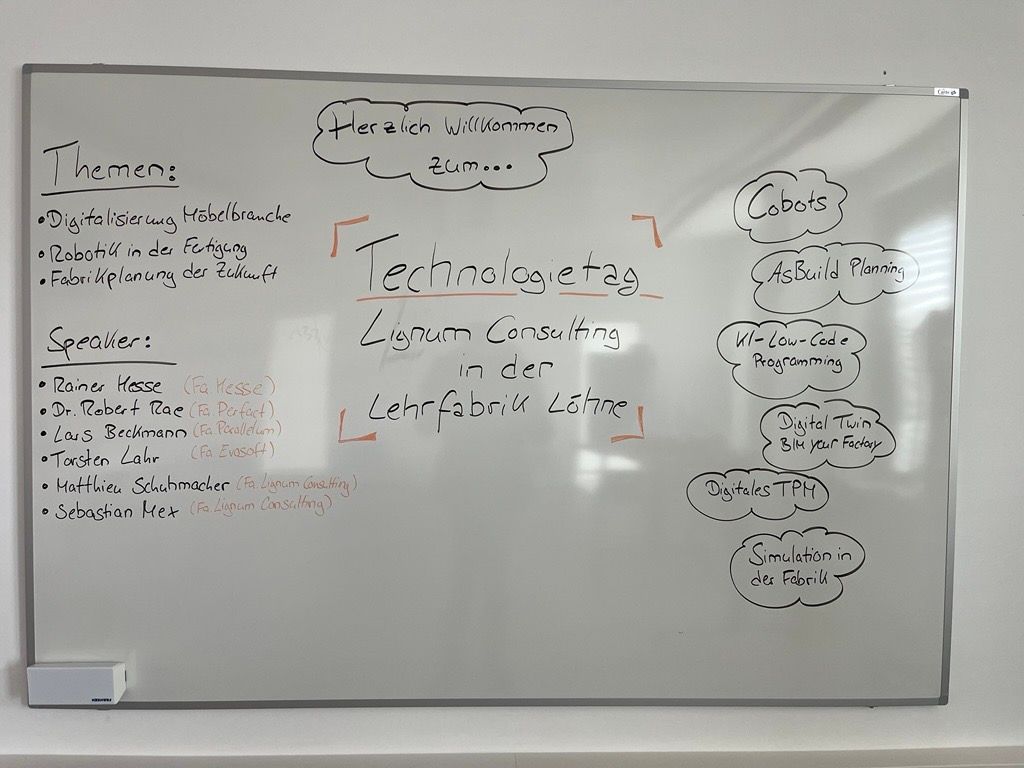 Herzlich Willkommen
zum...
Themen:
• Digitalisierung Möbelbranche
• Robotik in der Fertigung
• Fabrikplanung der Zukunft
Speaker:
• Rainer Hesse (Fa. Hesse)
• Dr. Robert Rae (Fa. Perfact)
• Lars Beckmann (Fa. Paralldum)
• Torsten Lahr (Fa. Evosoft)
• Matthieu Schuhmacher (Fa. Lignum Consulting)
• Sebastian Mex (Fa. Lignum Consulting)
Technologietag
Lignum Consulting
in der
Lehrfabrik Löhne
Cobots
AsBuild Planning
KI-Low-Code
Programming
Digital Twin
BIM your Factory
Digitales TPM
Simulation in
der Fabrik